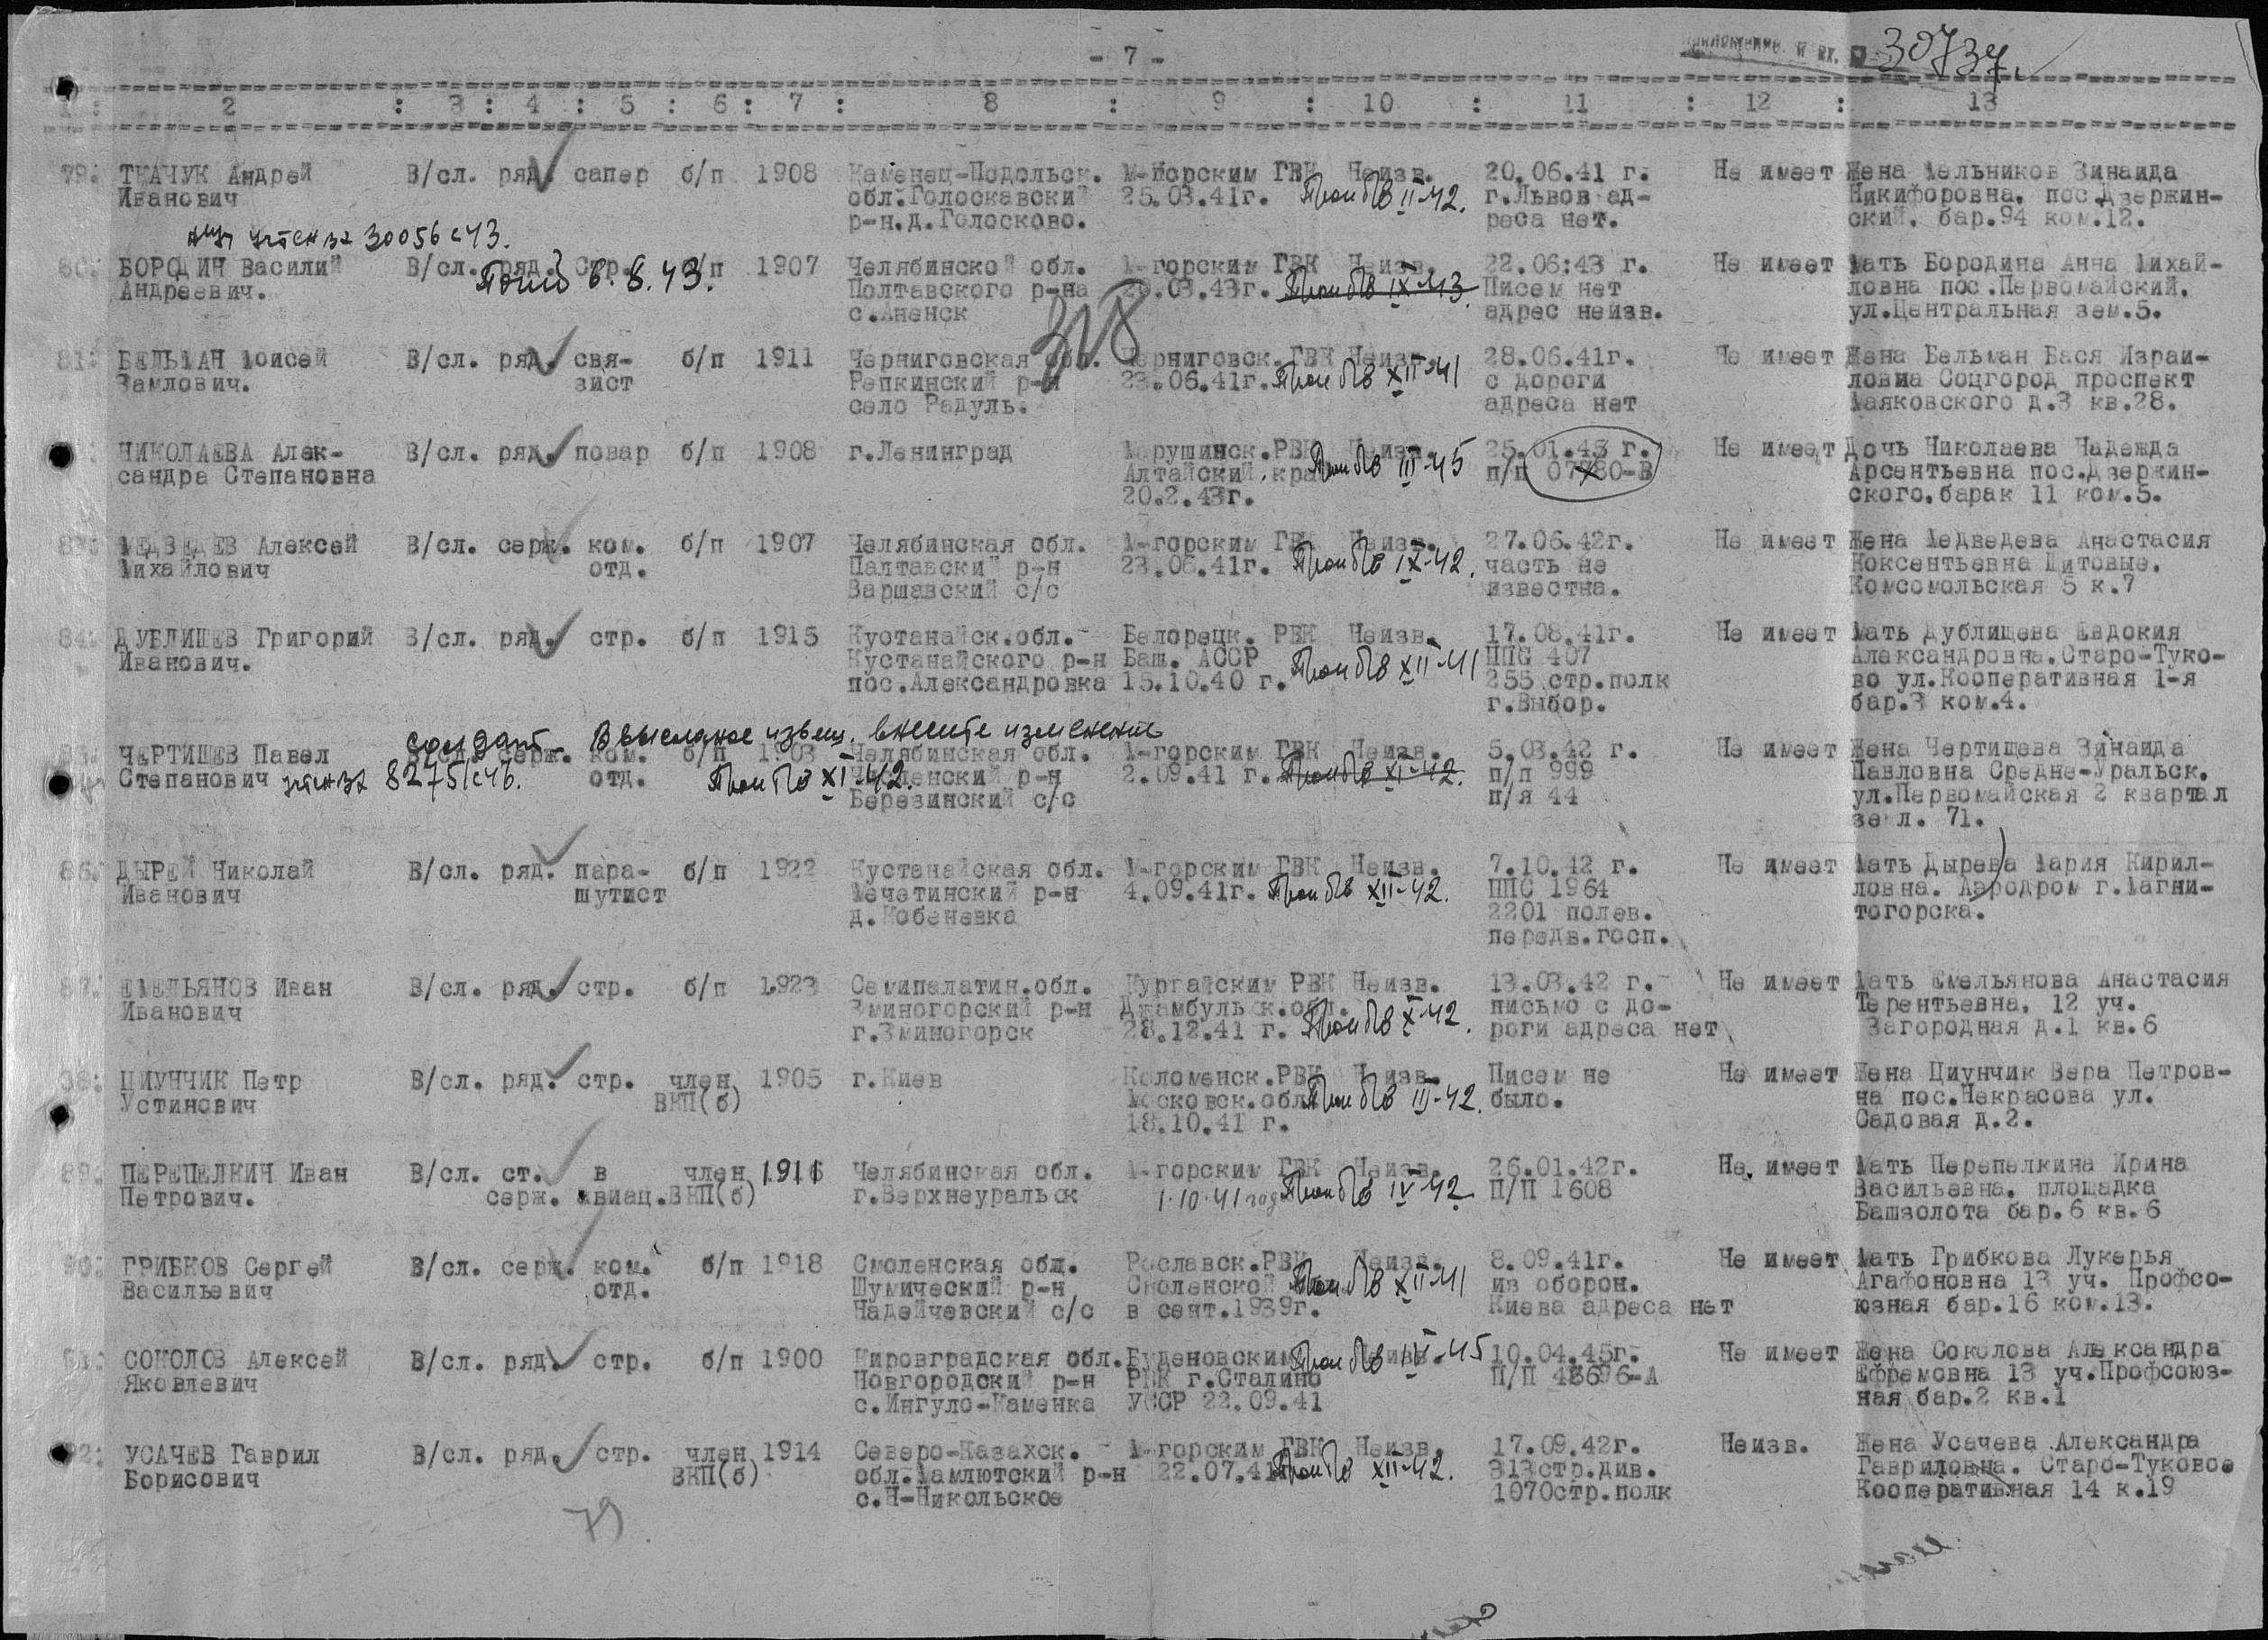 - 7 -
30734.
2 : 3 : 4 : 5 : 6 : 7 : 8 : 9 : 10 : 11 : 12 : 13
79. ТКАЧУК Андрей В/сл. ряд. сапер б/п 1908 Каменец-Подольск. М-горским ГВК Неизв. 20.06.41 г. Не имеет Жена Мельников Зинаида
Иванович обл.Голоскавский 25.03.41г. Проп б/в II-42. г.Львов ад- Никифоровна. пос.Дзержин-
р-н.д.Голосково. реса нет. ский. бар.94 ком.12.
30056с43.
80. БОРОДИН Василий В/сл. ряд. стр. б/п 1907 Челябинской обл. М-горским ГВК Неизв. 22.06:43 г. Не имеет Мать Бородина Анна Михай-
Андреевич. Погиб 6.8.43. Полтавского р-на 20.03.43г. Проп б/в IX-43. Писем нет ловна пос.Первомайский.
с.Аненск адрес неизв. ул.Центральная зем.5.
318
81. БЕЛЬМАН Моисей В/сл. ряд. свя- б/п 1911 Черниговская обл. Черниговск.ГВК Неизв. 28.06.41г. Не имеет Жена Бельман Бася Израи-
Замлович. зист Репкинский р-н 23.06.41г. Проп б/в XII-41 с дороги ловна Соцгород проспект
село Радуль. адреса нет Маяковского д.3 кв.28.
НИКОЛАЕВА Алек- В/сл. ряд. повар б/п 1908 г.Ленинград Марушинск.РВК Неизв. 25.01.45 г. Не имеет Дочь Николаева Надежда
сандра Степановна Алтайский.края Проп б/в III-45 п/п 07780-В Арсентьевна пос.Дзержин-
20.2.43г. ского.барак 11 ком.5.
83. МЕДВЕДЕВ Алексей В/сл. серж. ком. б/п 1907 Челябинская обл. М-горским ГВК Неизв. 27.06.42г. Не имеет Жена Медведева Анастасия
Михайлович отд. Палтавский р-н 23.06.41г. Проп б/в IX-42. часть не Ноксентьевна Щитовые.
Варшавский с/с известна. Комсомольская 5 к.7
84. ДУБЛИЩЕВ Григорий В/сл. ряд. стр. б/п 1915 Кустанайск.обл. Белорецк. РВК Неизв. 17.08.41г. Не имеет Мать Дублищева Евдокия
Иванович. Кустанайского р-н Баш. АССР Проп б/в XII-41 ППС 407 Александровна.Старо-Туко-
пос.Александровка 15.10.40 г. 255 стр.полк во ул.Кооперативная 1-я
г.Выбор. бар.3 ком.4.
солдат В высланое извещ. внесите изменение
85. ЧЕРТИЩЕВ Павел В/сл. серж. ком. б/п 1903 Челябинская обл. М-горским ГВК Неизв. 5.03.42 г. Не имеет Жена Чертищева Зинаида
Степанович 82751с46. отд. Проп б/в XI-42. р-н 2.09.41 г. Проп б/в XI-42. п/п 999 Павловна Средне-Уральск.
Березинский с/с п/я 44 ул.Первомайская 2 квартал
зем. 71.
86. ДЫРЕЙ Николай В/сл. ряд. пара- б/п 1922 Кустанайская обл. М-горским ГВК Неизв. 7.10.42 г. Не имеет Мать Дырева Мария Кирил-
Иванович шутист Мечетинский р-н 4.09.41г. Проп б/в XII-42. ППС 1964 ловна. Аэродром г.Магни-
д.Кобеневка 2201 полев. тогорска.
передв.госп.
87. ЕМЕЛЬЯНОВ Иван В/сл. ряд. стр. б/п 1923 Семипалатин.обл. Кургайским РВК Неизв. 13.03.42 г. Не имеет Мать Емельянова Анастасия
Иванович Зминогорский р-н Джамбульск.обл. письмо с до- Терентьевна. 12 уч.
г.Зминогорск 28.12.41 г. Проп б/в X-42. роги адреса нет Загородная д.1 кв.6
88: ЦИУНЧИК Петр В/сл. ряд. стр. член 1905 г.Киев Коломенск.РВК Неизв. Писем не Не имеет Жена Циунчик Вера Петров-
Устинович ВКП(б) Московск.обл. Проп б/в III-42. было. на пос.Некрасова ул.
18.10.41 г. Садовая д.2.
89. ПЕРЕПЕЛКИН Иван В/сл. ст. в член 1911 Челябинская обл. М-горским ГВК Неизв. 26.01.42г. Не имеет Мать Перепелкина Ирина
Петрович. серж. авиац.ВКП(б) г.Верхнеуральск 1.10.41 год Проп б/в IV-42 П/П 1608 Васильевна. площадка
Башзолота бар.6 кв.6
90. ГРИБКОВ Сергей В/сл. серж. ком. б/п 1918 Смоленская общ. Рославск.РВК Неизв. 8.09.41г. Не имеет Мать Грибкова Лукерья
Васильевич отд. Шумический р-н Смоленской Проп б/в XII-41 из оборон. Агафоновна 13 уч. Профсо-
Надейчевский с/с в сент.1939г. Киева адреса нет юзная бар.16 ком.13.
91: СОКОЛОВ Алексей В/сл. ряд. стр. б/п 1900 Кировградская обл. Буденовским Проп б/в Неизв. 10.04.45г. Не имеет Жена Соколова Александра
Яковлевич Новгородский р-н РВК г.Сталино П/П 43676-А Ефремовна 13 уч.Профсоюз-
с.Ингуло-Каменка УССР 22.09.41 ная бар.2 кв.1
92: УСАЧЕВ Гаврил В/сл. ряд. стр. член 1914 Северо-Казахск. М-горским ГВК Неизв. 17.09.42г. Неизв. Жена Усачева Александра
Борисович ВКП(б) обл.Мамлютский р-н 22.07.41 Проп б/в XII-42. 313стр.див. Гавриловна. Старо-Туковое
с.Н-Никольское 1070стр.полк Кооперативная 14 к.19
79